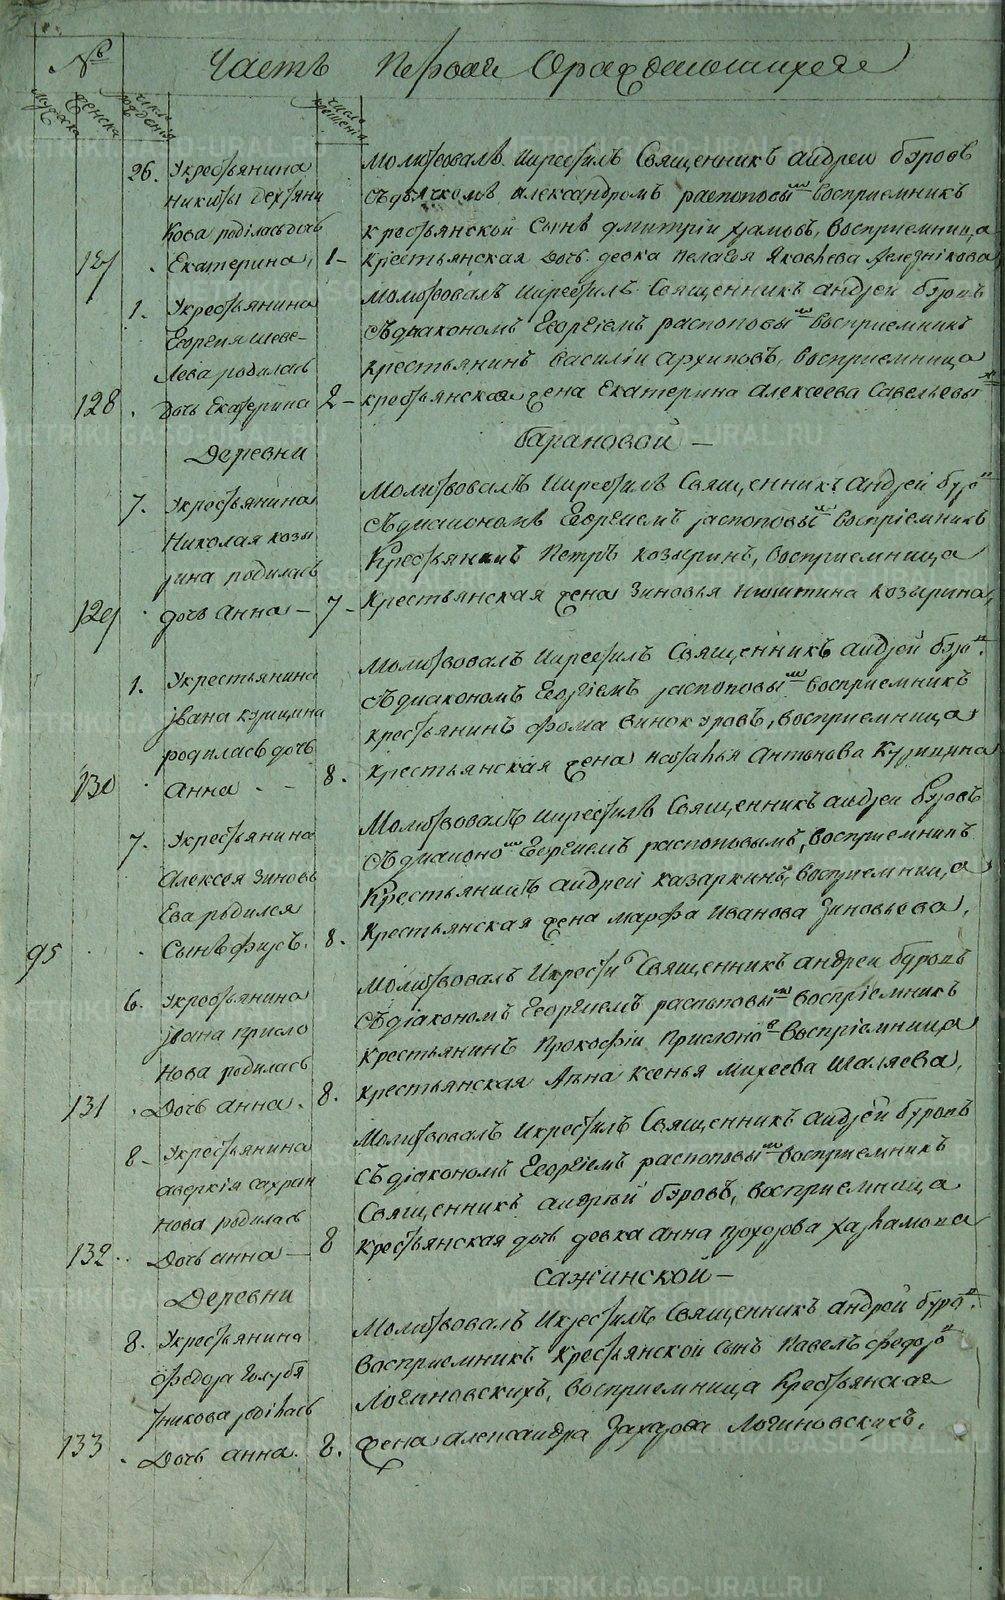 №
Часть Первая О раждающихся
Мужеска
Женска
число рождения
число крещения
26. У крестьянина
Никиты Дехтяни
кова роділась дочь
127 Екатерина, 1-
Молитвовалъ и крестилъ Священникъ андрей буровъ
съ дьячкомъ александромъ распоповымъ восприемникъ
крестьянской Сынъ дмитрій храмовъ, восприемница
крестьянская дочь девка пелагея Яковлева
1. У крестьянина
Георгия Шеве-
лева родилась
128 дочь Екатерина 2-
Молитвовалъ и крестилъ Священникъ андрей буровъ
съ диакономъ Георгіемъ распоповымъ восприемникъ
крестьянинъ василіи архиповъ, восприемница
крестьянская жена Екатерина алексеева Савельевыхъ
Деревни Барановой -
7. У крестьянина
Николая козы
рина родилась
129 дочь Анна - 7-
Молитвовалъ и крестилъ Священникъ андрей буровъ
съ диакономъ Георгиемъ распоповымъ воспріемникъ
Крестьянинъ Петръ козыринъ, восприемница
Крестьянская жена Зиновья никитина козырина,
1. У крестьянина
Ивана курицина
родилась дочь
130 Анна - 8.
Молитвовалъ и крестилъ Священникъ андрей буровъ.
съ диакономъ Георгіемъ распоповымъ восприемникъ
крестьянинъ фома винокуровъ, восприемница
крестьянская жена наталья антонова Курицина
7. У крестьянина
Алексея Зиновь
Ева родился
95 Сынъ фирсъ. 8.
Молитвовалъ и крестилъ Священникъ андреи буровъ
съ диакономъ Георгиемъ распоповымъ, восприемникъ
Крестьянинъ андреи казаркинъ, восприемница
Крестьянская жена марфа Иванова Зиновьева.
6. У крестьянина
Ивана присло
нова родилась
131 Дочь анна. 8.
Молитвовалъ И крести Священникъ андреи буровъ
съ діакономъ Георгиемъ распоповымъ воспріемникъ
крестьянинъ Прокофіи Прислоновъ воспріемница
крестьянская жена ксенья михеева Шаляева,
8- У крестьянина
аверкія сахран
нова родилась
132 Дочь анна - 8
Молитвовалъ и крестилъ Священникъ андрей буровъ
съ діакономъ Георгіемъ распоповымъ восприемникъ
Священникъ андрей буровъ, восприемница
крестьянская дочь девка анна прохорова харламова
Деревни Сажинской -
8. У крестьянина
Федора голубя
тникова роділась
133 Дочь анна. 8.
Молитвовалъ И крестилъ Священникъ андрей буровъ.
восприемникъ крестьянской сынъ павелъ федоровъ
Логиновскихъ, восприемница крестьянская
жена александра Захарова Логиновскихъ.
METRIKI.GASO-URAL.RU